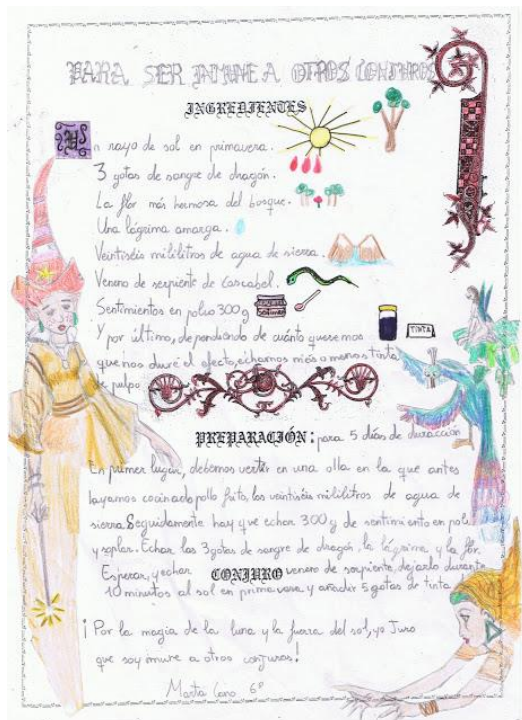 PARA SER INMUNE A OTROS CONJUROS
INGREDIENTES
Un rayo de sol en primavera.
3 gotas de sangre de dragón.
La flor más hermosa del bosque.
Una lágrima amarga.
Veintiséis mililitros de agua de sierra.
Veneno de serpiente de cascabel.
Sentimientos en polvo 300g
Y por último, dependiendo de cuánto queremos
TINTA
que nos dure el efecto, echamos más o menos tinta
de pulpo.
PREPARACIÓN: para 5 días de duración
En primer lugar, debemos vertir en una olla en la que antes
hayamos cocinado pollo frito, los veintiséis mililitros de agua de
sierra. Seguidamente hay que echar 300 g de sentimiento en polvo
y soplar. Echar las 3 gotas de sangre de dragón, la lágrima y la flor.
Esperar, y echar veneno de serpiente, dejarlo durante
CONJURO
10 minutos al sol en primavera y añadir 5 gotas de tinta
¡Por la magia de la luna y la fuerza del sol, yo Juro
que soy inmune a otros conjuros!
Marta Cano 6º